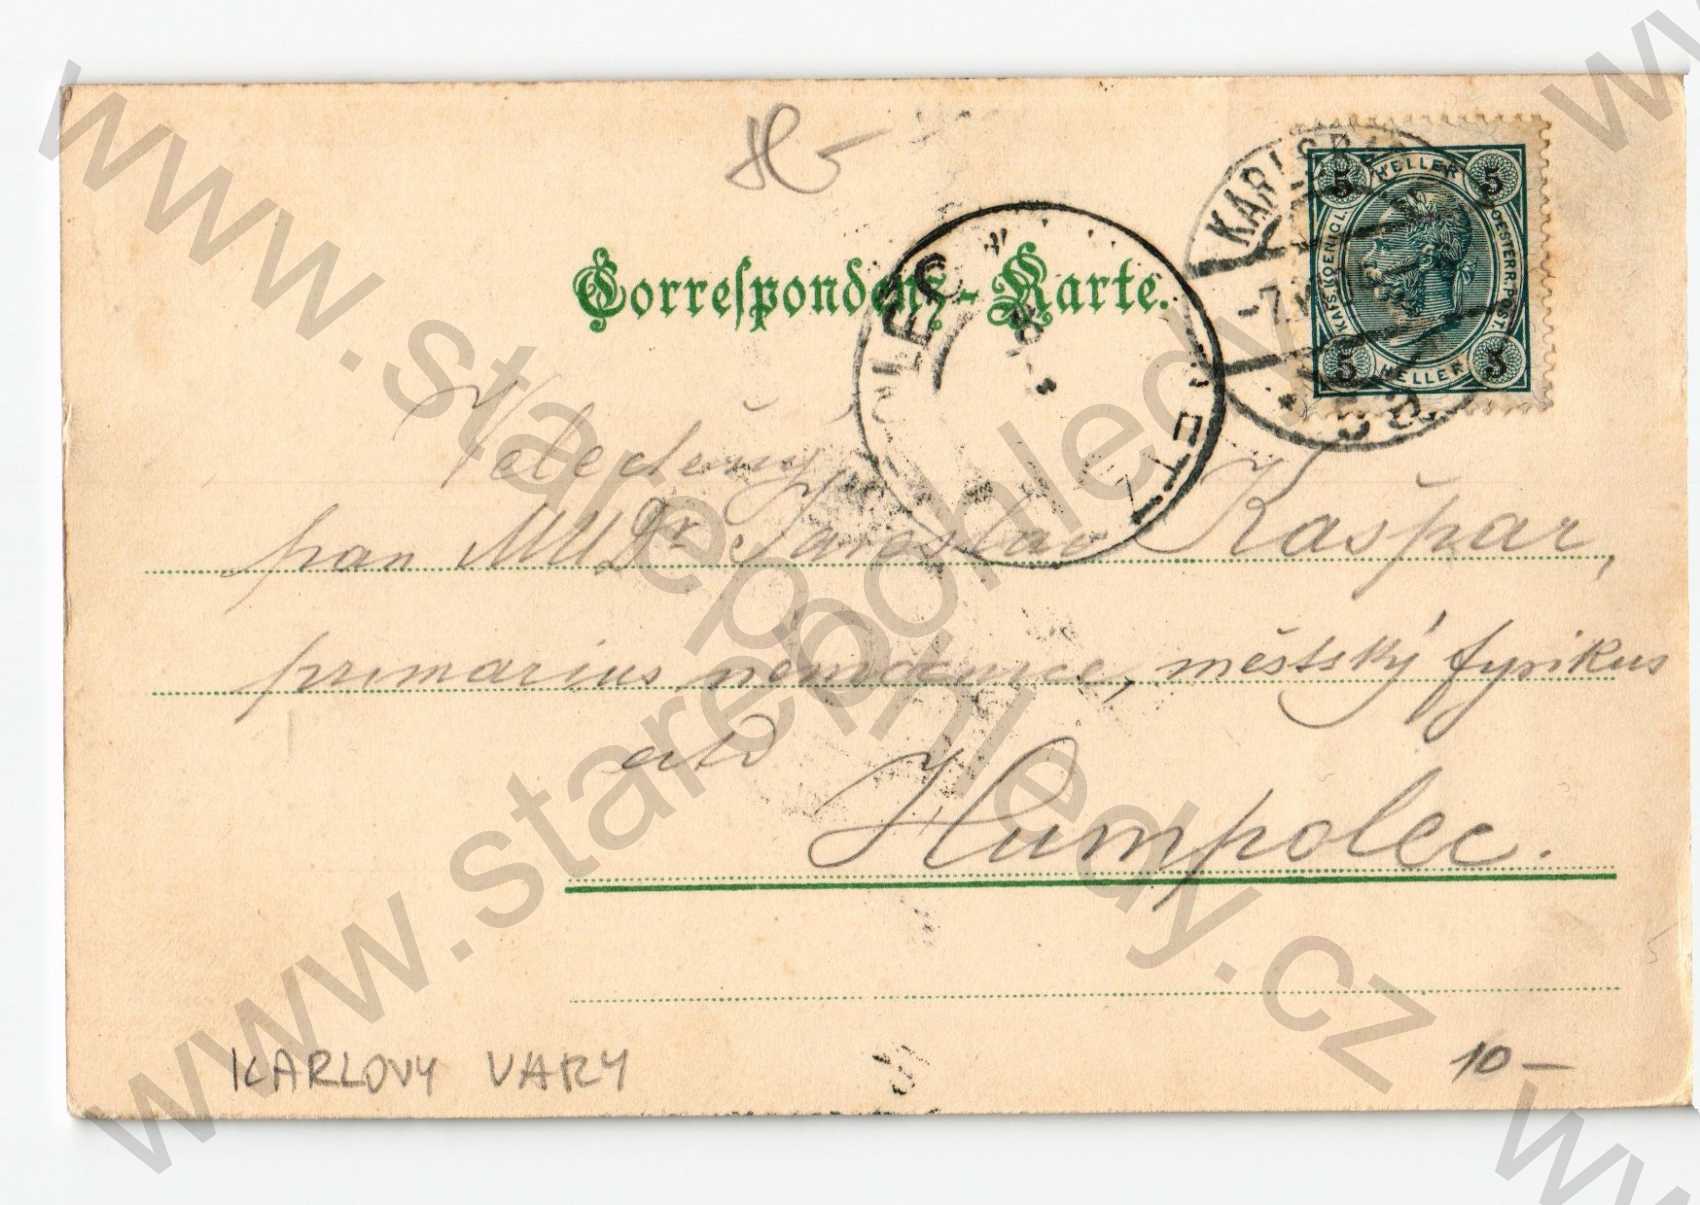 Correspondenz-Karte.
KARLSBA
-7.
HELLER
KAIS. KOENIGL.
OESTERR. POST.
HELLER
5 5 5 5
LEC
Veledůstojný
pan MUDr. Jaroslav Kašpar,
primarius nemocnice, městský fysikus
atd
Humpolec.
KARLOVY VARY
10-
www.starepohledy.cz
www.starepohledy.cz